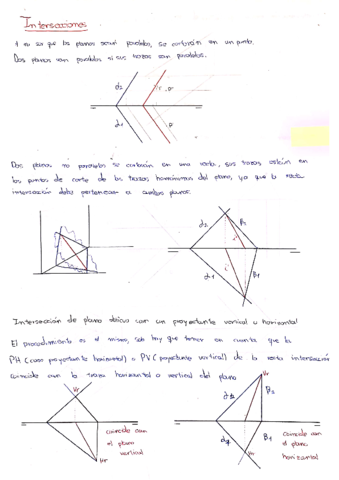 Intersecciones
A no ser que los planos sean paralelos, se cortarán en un punto.
Dos planos son paralelos si sus trazas son paralelas.
α2
r'
α1
Dos planos no paralelos se cortarán en una recta, sus trazas estarán en
los puntos de corte de las trazas homónimas del plano, ya que la recta
intersección debe pertenecer a ambos planos.
α2
β2
α1
β1
Intersección de plano oblicuo con un proyectante vertical u horizontal
El procedimiento es el mismo, solo hay que tener en cuenta que la
PH (caso proyectante horizontal) o PV (proyectante vertical) de la recta intersección
coincide con la traza horizontal o vertical del plano
Vr
coincide con
el plano
vertical
Hr
Vr
α2
β2
α1
β1
Hr
coincide con
el plano
horizontal